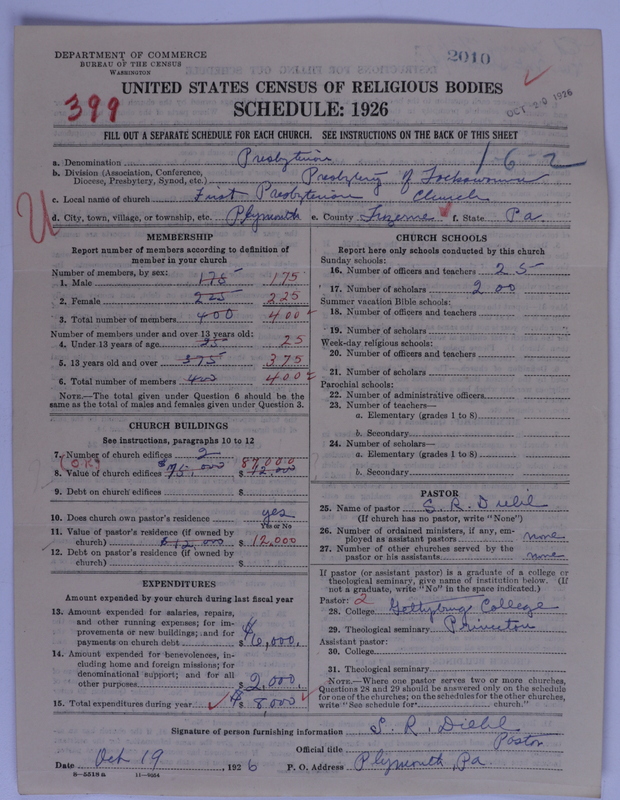 DEPARTMENT OF COMMERCE
BUREAU OF THE CENSUS
WASHINGTON
2010
OCT 20 1926
399
UNITED STATES CENSUS OF RELIGIOUS BODIES
SCHEDULE: 1926
FILL OUT A SEPARATE SCHEDULE FOR EACH CHURCH. SEE INSTRUCTIONS ON THE BACK OF THIS SHEET
1-6-2
a. Denomination Presbyterian
b. Division (Association, Conference, Diocese, Presbytery, Synod, etc.) Presbytery of Lackawanna
c. Local name of church First Presbyterian Church
d. City, town, village, or township, etc. Plymouth e. County Luzerne f. State Pa
MEMBERSHIP
Report number of members according to definition of
member in your church
Number of members, by sex:
1. Male 175 175
2. Female 225 225
3. Total number of members 400 400
Number of members under and over 13 years old:
4. Under 13 years of age 25 25
5. 13 years old and over 375 375
6. Total number of members 400 400
NOTE.—The total given under Question 6 should be
same as the total of males and females given under Question 3.
CHURCH BUILDINGS
See instructions, paragraphs 10 to 12
7. Number of church edifices 2
(O.K) 87000
8. Value of church edifices $75,000 $12,000
9. Debt on church edifices $
10. Does church own pastor's residence yes
Yes or No
11. Value of pastor's residence (if owned by
church) $12,000 $12,000
12. Debt on pastor's residence (if owned by
church) $
EXPENDITURES
Amount expended by your church during last fiscal year
13. Amount expended for salaries, repairs,
and other running expenses; for im-
provements or new buildings; and for
payments on church debt $6,000.
14. Amount expended for benevolences, in-
cluding home and foreign missions; for
denominational support; and for all
other purposes $2,000.
15. Total expenditures during year $8,000
CHURCH SCHOOLS
Report here only schools conducted by this church
Sunday schools:
16. Number of officers and teachers 25
17. Number of scholars 200
Summer vacation Bible schools:
18. Number of officers and teachers
19. Number of scholars
Week-day religious schools:
20. Number of officers and teachers
21. Number of scholars
Parochial schools:
22. Number of administrative officers
23. Number of teachers—
a. Elementary (grades 1 to 8)
b. Secondary
24. Number of scholars—
a. Elementary (grades 1 to 8)
b. Secondary
PASTOR
25. Name of pastor S. R. Diehl
(If church has no pastor, write "None")
26. Number of ordained ministers, if any, em-
ployed as assistant pastors none
27. Number of other churches served by the
pastor or his assistants none
If pastor (or assistant pastor) is a graduate of a college or
theological seminary, give name of institution below. (If
not a graduate, write "No" in the space indicated.)
Pastor: 2
28. College Gettysburg College
29. Theological seminary Princeton
Assistant pastor:
30. College
31. Theological seminary
NOTE.—Where one pastor serves two or more churches,
Questions 28 and 29 should be answered only on the schedule
for one of the churches; on the schedules for the other churches,
write "See schedule for church."
Signature of person furnishing information S. R. Diehl
Official title Pastor
Date Oct 19, 1926 P. O. Address Plymouth Pa
8—5518 a 11—9054